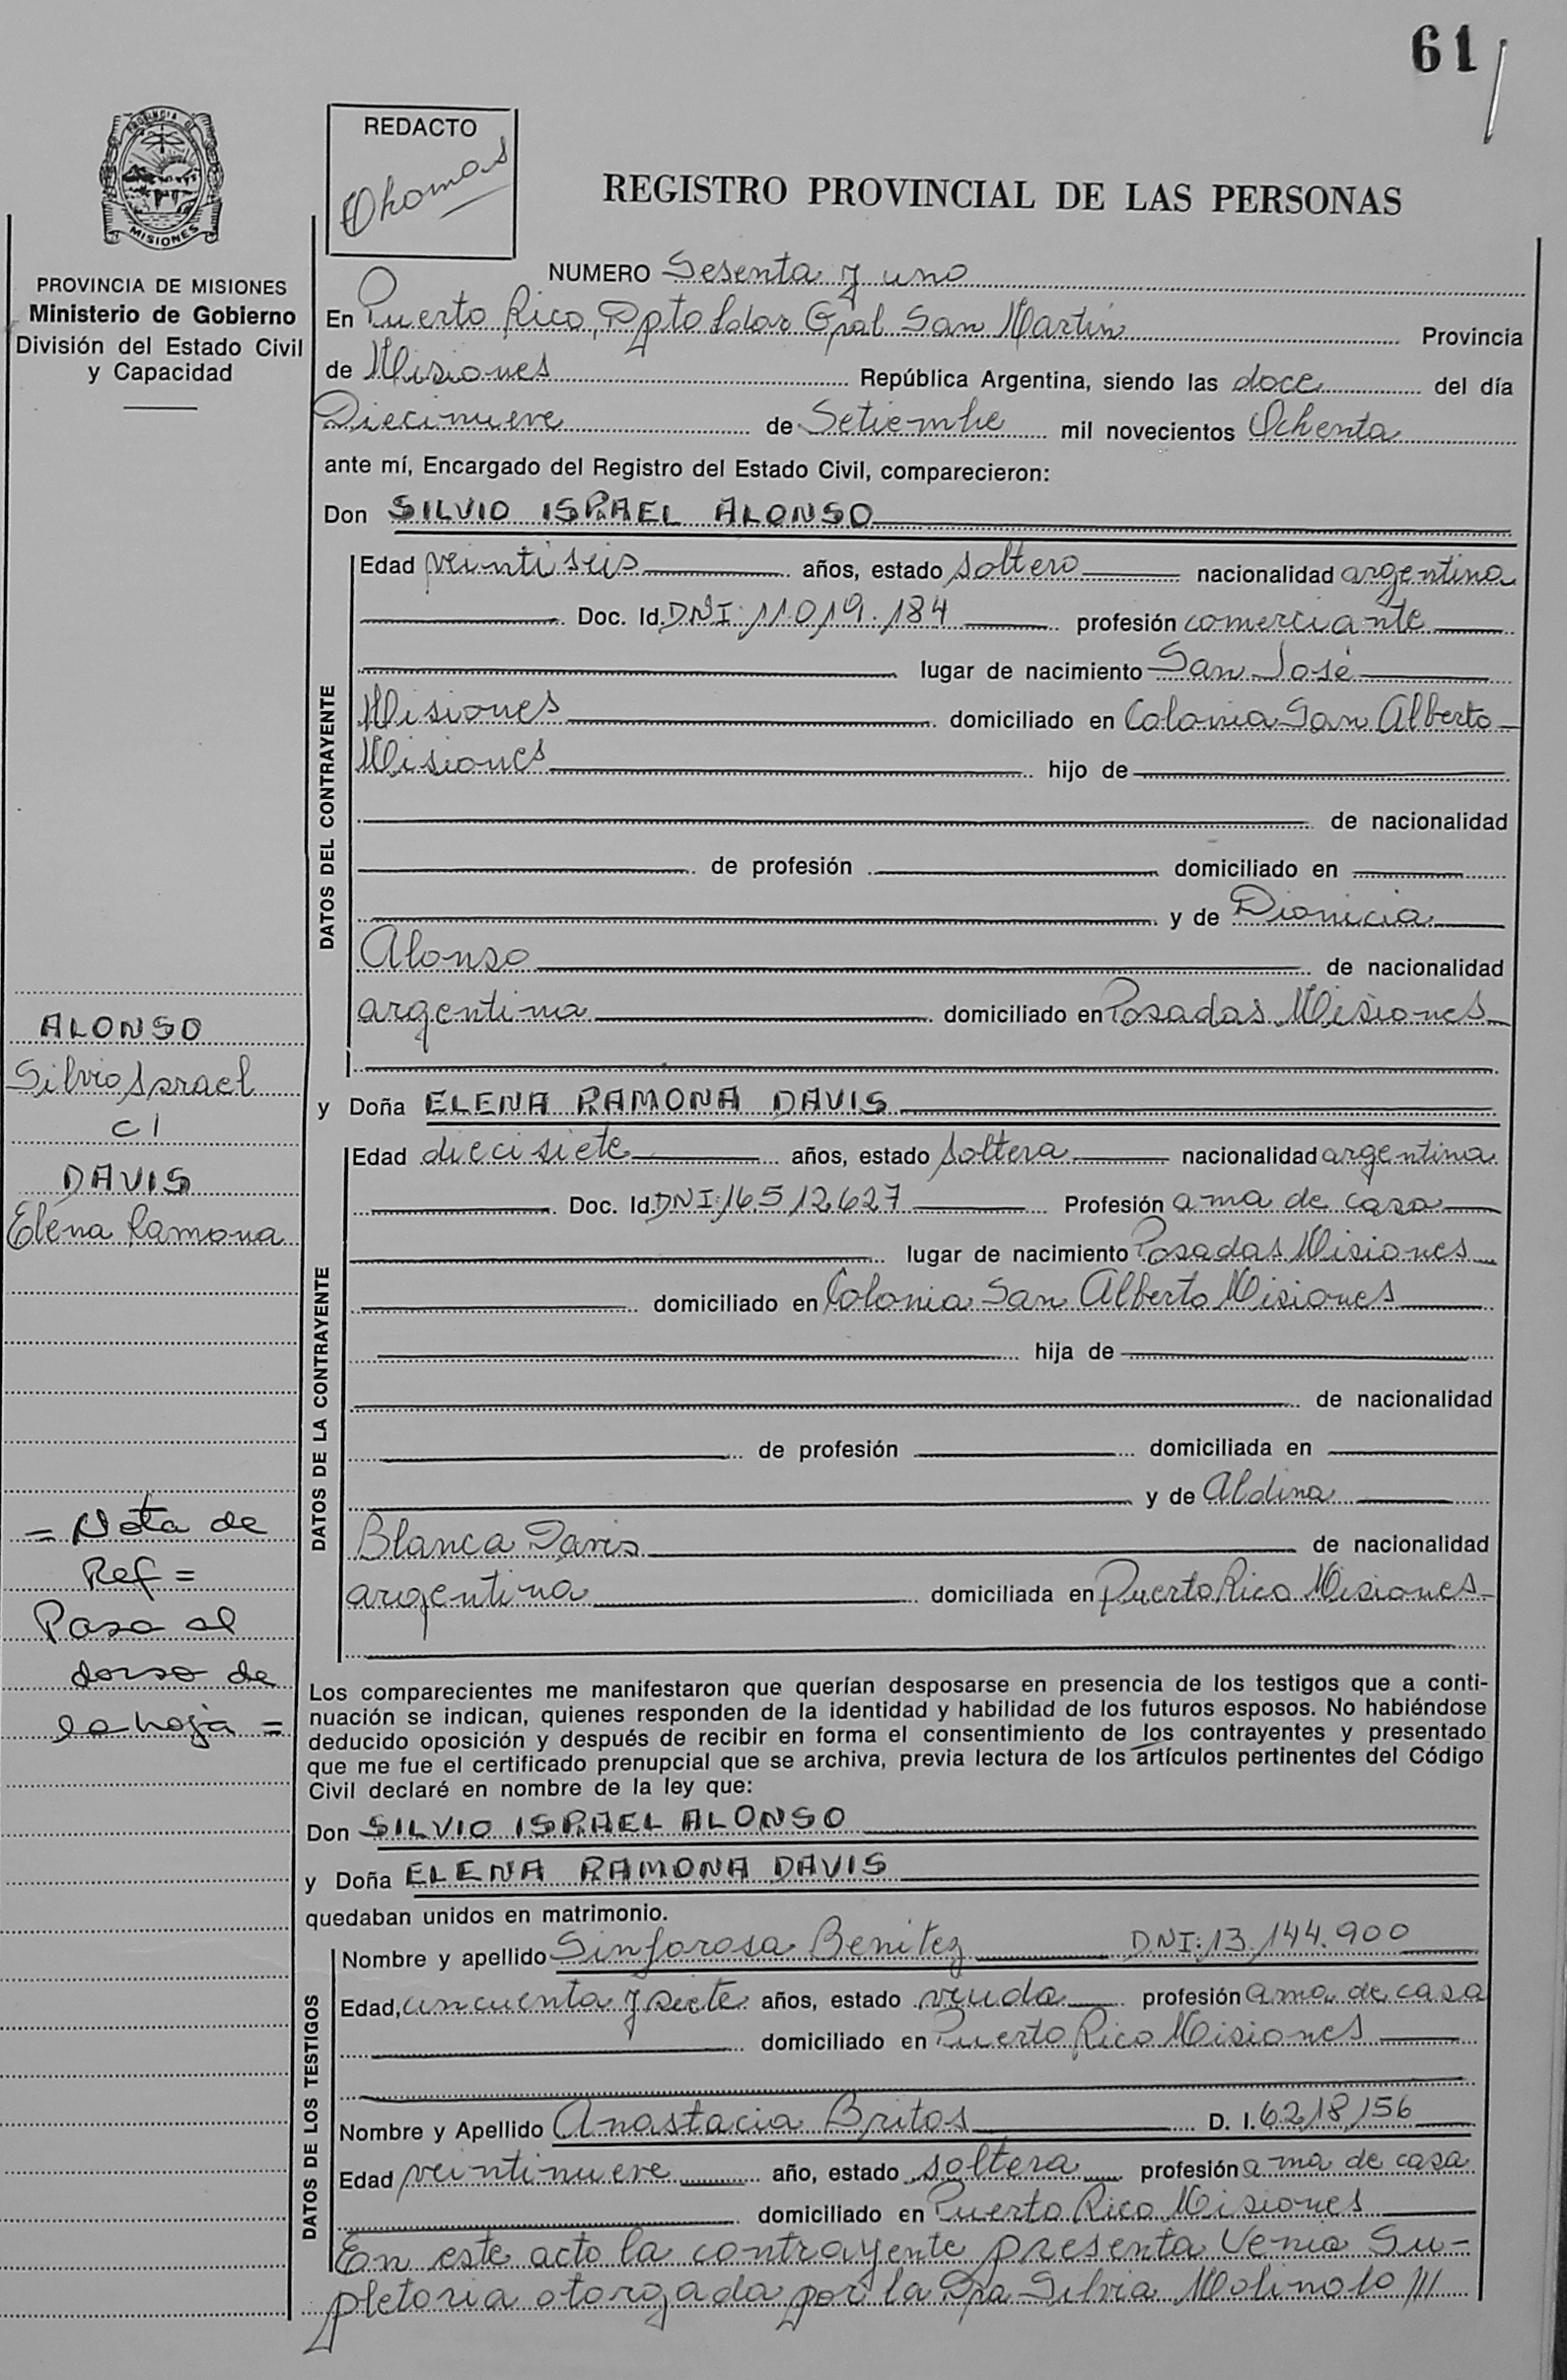 61
PROVINCIA DE
MISIONES
REDACTO
REGISTRO PROVINCIAL DE LAS PERSONAS
PROVINCIA DE MISIONES
Ministerio de Gobierno
División del Estado Civil
y Capacidad
NUMERO Sesenta y uno
En Puerto Rico, Dpto Ldor Gral San Martín Provincia
de Misiones República Argentina, siendo las doce del día
Diecinueve de Setiembre mil novecientos Ochenta
ante mí, Encargado del Registro del Estado Civil, comparecieron:
Don SILVIO ISRAEL ALONSO
DATOS DEL CONTRAYENTE
Edad veintiseis años, estado soltero nacionalidad argentina
Doc. Id. DNI: 11.019.184 profesión comerciante
lugar de nacimiento San José
Misiones domiciliado en Colonia San Alberto
Misiones hijo de
de nacionalidad
de profesión domiciliado en
y de Dionicia
Alonso de nacionalidad
argentina domiciliado en Posadas Misiones
y Doña ELENA RAMONA DAVIS
DATOS DE LA CONTRAYENTE
Edad diecisiete años, estado soltera nacionalidad argentina
Doc. Id. DNI: 16.512.627 Profesión ama de casa
lugar de nacimiento Posadas Misiones
domiciliado en Colonia San Alberto Misiones
hija de
de nacionalidad
de profesión domiciliada en
y de Aldina
Blanca Davis de nacionalidad
argentina domiciliada en Puerto Rico Misiones
ALONSO
Silvio Israel
c/
DAVIS
Elena Ramona
= Nota de
Ref =
Pasa al
dorso de
la hoja =
Los comparecientes me manifestaron que querían desposarse en presencia de los testigos que a conti-
nuación se indican, quienes responden de la identidad y habilidad de los futuros esposos. No habiéndose
deducido oposición y después de recibir en forma el consentimiento de los contrayentes y presentado
que me fue el certificado prenupcial que se archiva, previa lectura de los artículos pertinentes del Código
Civil declaré en nombre de la ley que:
Don SILVIO ISRAEL ALONSO
y Doña ELENA RAMONA DAVIS
quedaban unidos en matrimonio.
DATOS DE LOS TESTIGOS
Nombre y apellido Sinforosa Benitez DNI: 13.144.900
Edad, cincuenta y siete años, estado viuda profesión ama de casa
domiciliado en Puerto Rico Misiones
Nombre y Apellido Anastacia Britos D. I. 6.218.156
Edad veintinueve año, estado soltera profesión ama de casa
domiciliado en Puerto Rico Misiones
En este acto la contrayente presenta Venia Su-
pletoria otorgada por la Dra Silvia Molinolo ///